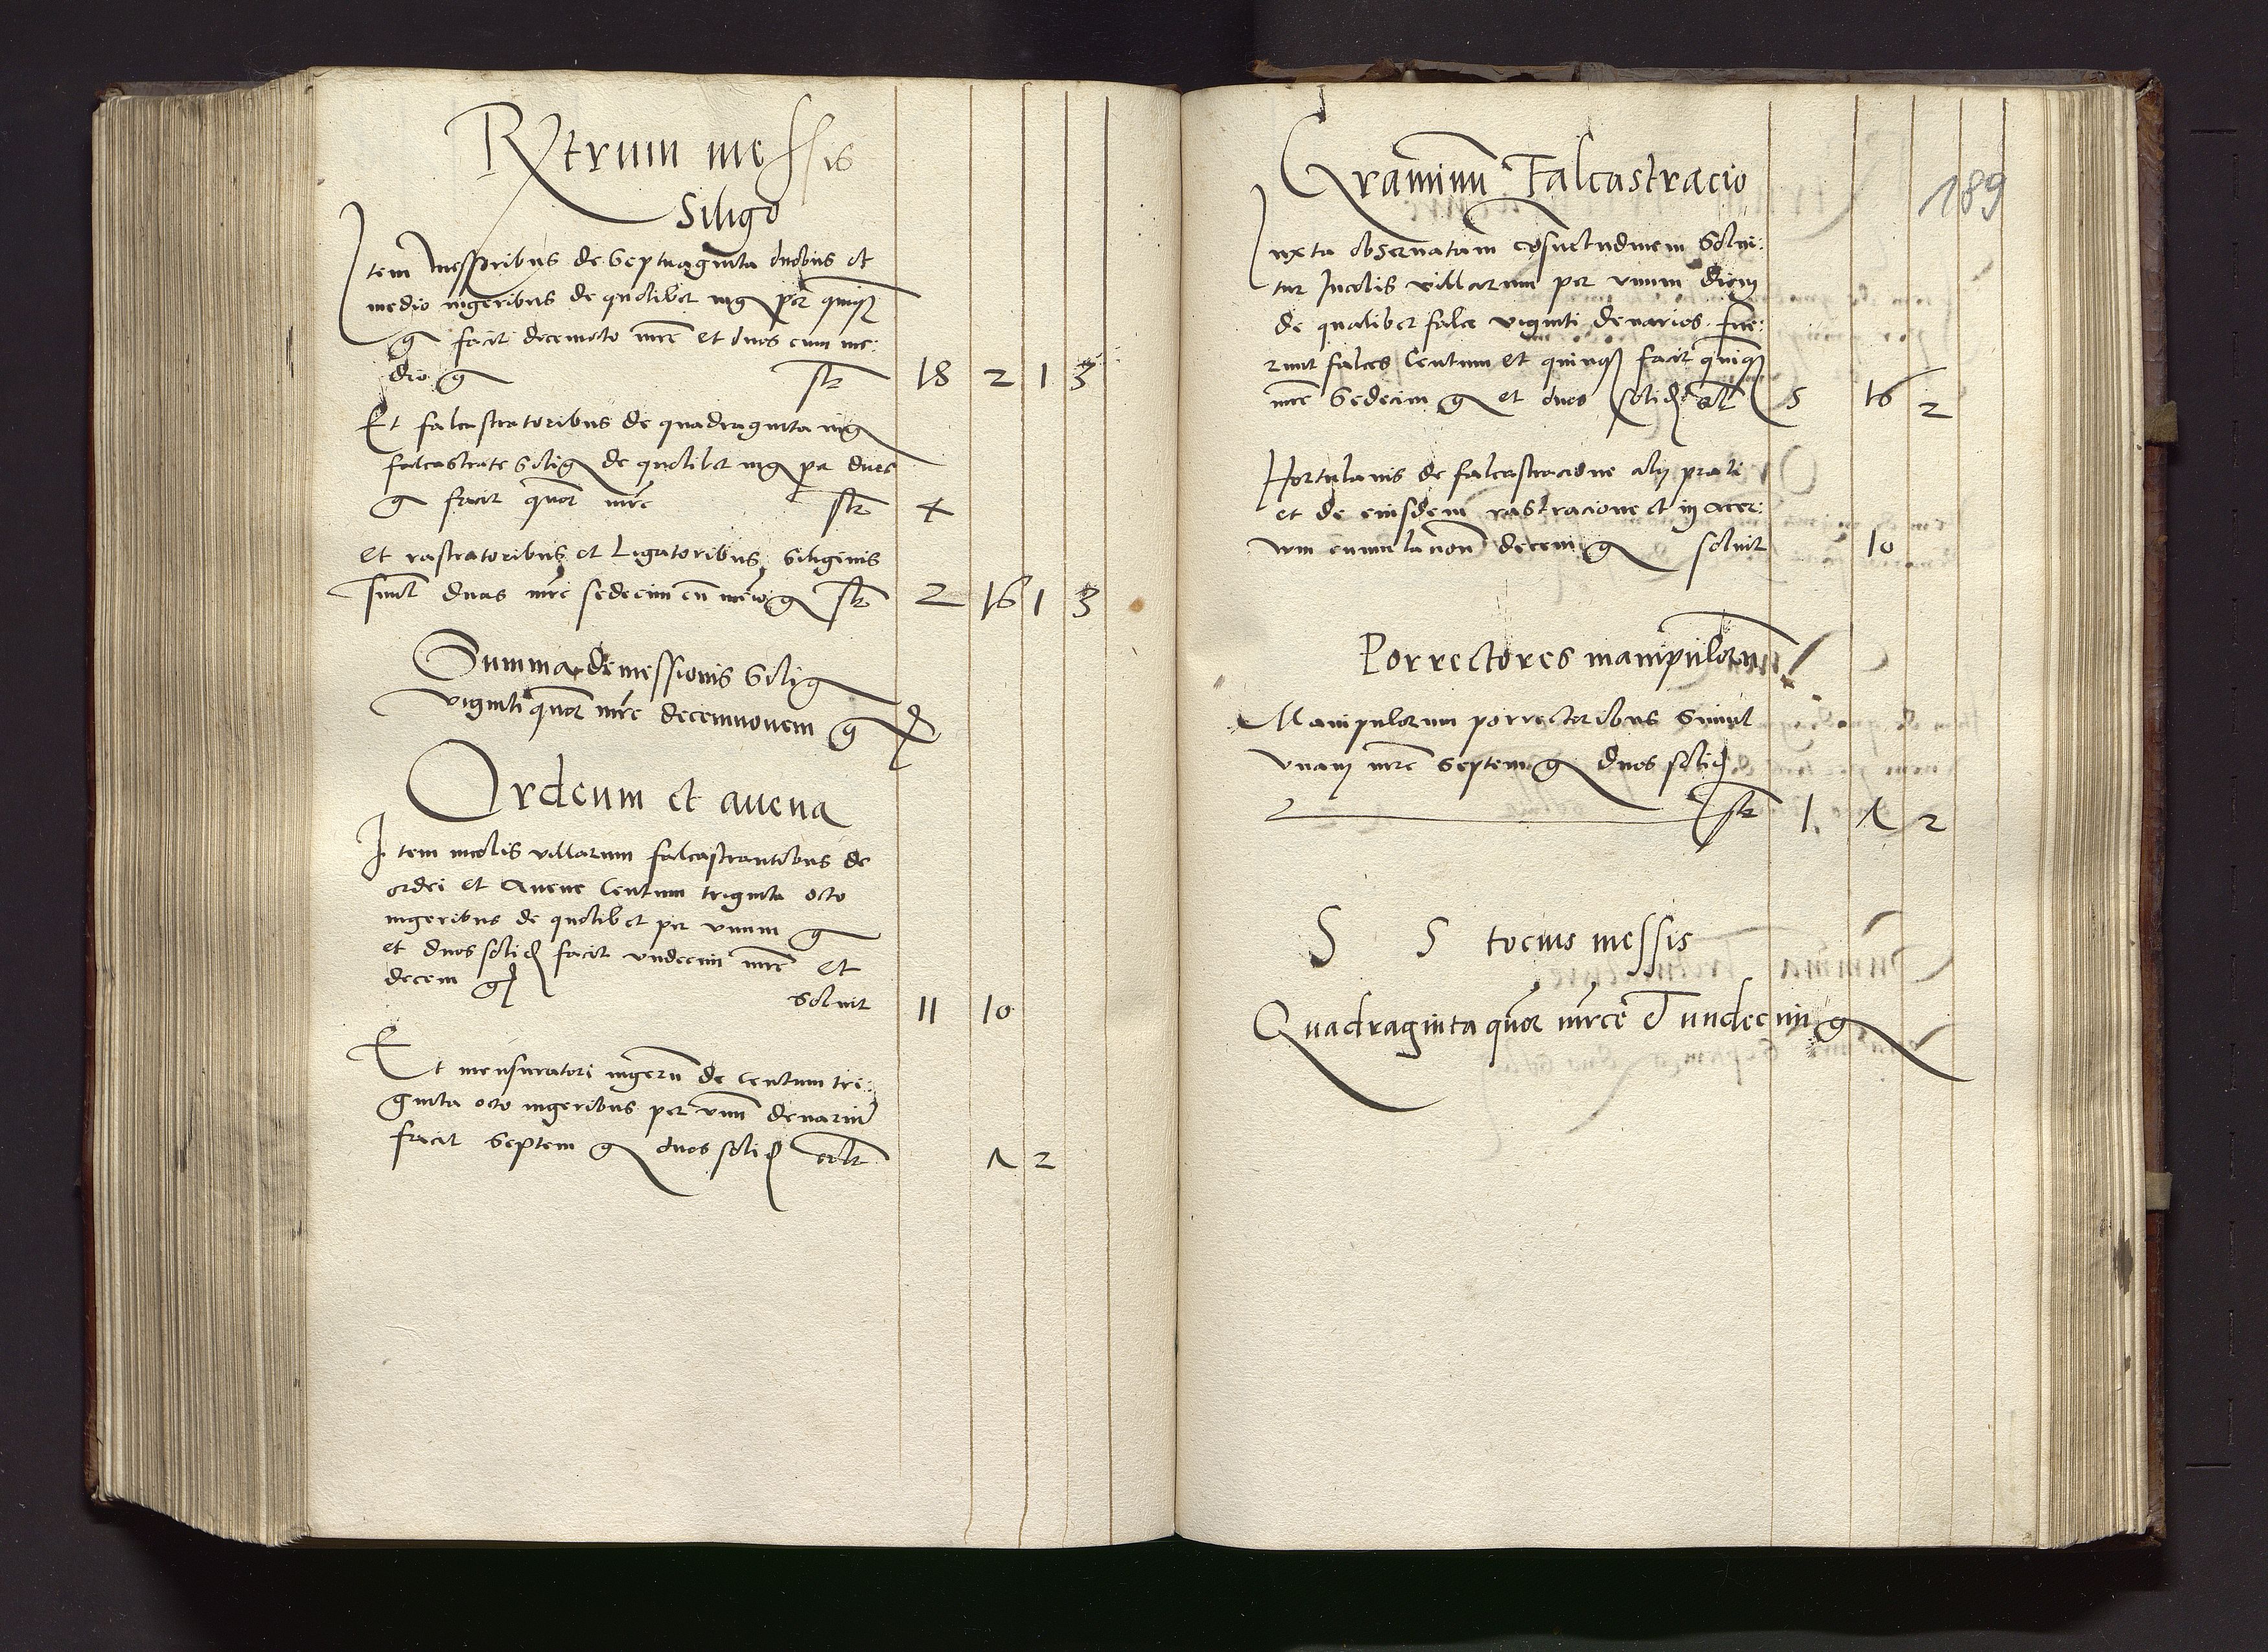 Rxtrum messis
Siligo
Item messoribus de septuaginta duobus et
medio iugeribus de quolibet iug per quinqʒ
g facit decemocto mrc et duos cum me:
dio g str 18 2 1 3
Et falcastratoribus de quadraginta iug
falcastrate silig de quolibet iug per duos
g facit quor mrc str 4
Et rastratoribus et ligatoribus siliginis
simul duas mrc sedecim cu medio g str 2 16 1 3
Summa demessionis silig
viginti quor mrc decemnovem g
Ordeum et avena
Item incolis villarum falcastrantibus de
ordei et avene Centum triginta octo
iugeribus de quolibet per unum g
et duos solid facit undecim mrc et
decem g
solvit 11 10
Et mensuratori iugeru de Centum tri:
ginta octo iugeribus per unu denariu
facit septem g duos solid solt 7 2
189
Graminu Falcastracio
Iuxta observatam cosuetudinem solvi:
tur Incolis villarum per unum diem
de qualibet falce viginti denarios. fue:
runt falces Centum et quinqʒ facit quinqʒ
mrc sedecim g et duos solid solt 5 16 2
Hortulanis de falcastracione alij prati
et de eiusdem rastracione et in acer:
vum cumulacion decem g solvit 10
Porrectores manipuloru
Manipulorum porrectoribus simul
unam mrc septem g duos solid
str 1 7 2
S S tocius messis
Quadraginta quor mrce et undecim g